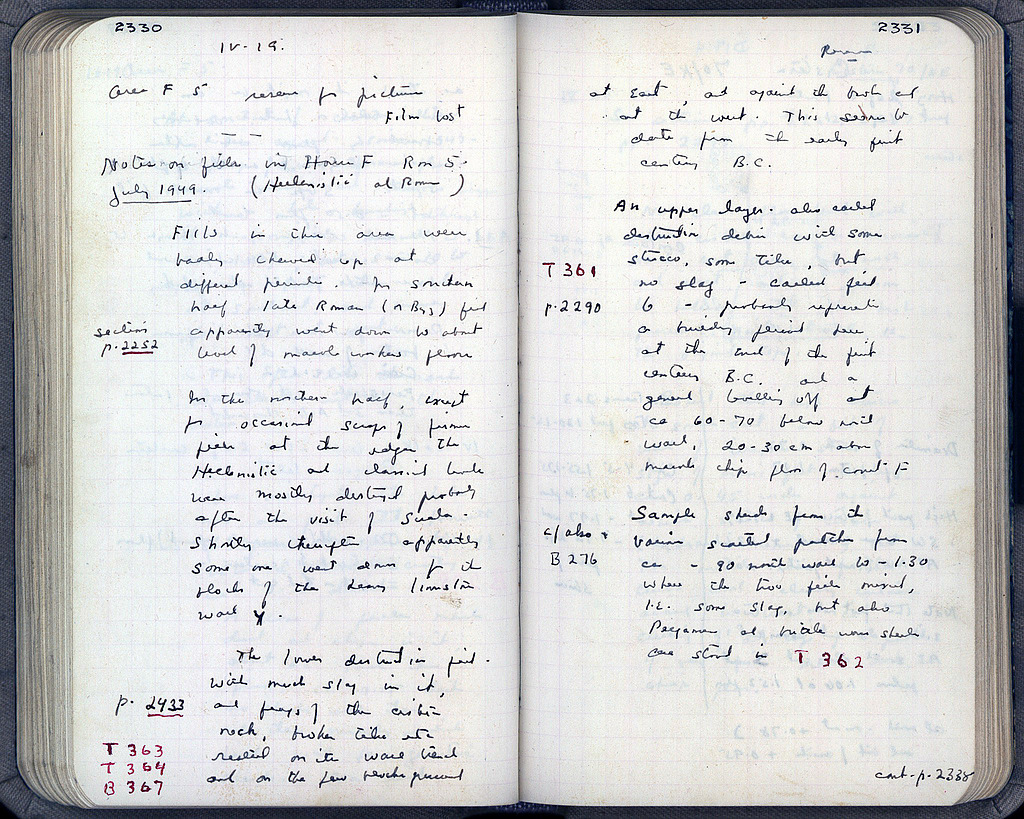 2330
IV-19.
Area F 5 reserve for picture
Film lost
Notes on fills in House F Rm 5.
July 1949. (Hellenistic and Roman)
Fills in this area were
badly chewed up at
different periods. In southern
half late Roman (or Byz) fill
section
p. 2252
apparently went down to about
level of marble workers floor
In the northern half, except
for occasional scraps of
fills at the edges the
Hellenistic and classical levels
were mostly destroyed probably
after the visit of Sulla.
Shortly thereafter apparently
some one went down for the
blocks of the heavy limestone
wall Y.
The lower destruction fill.
with much slag in it,
p. 2433
and frags of the
rock, broken tiles etc
T 363
T 364
B 367
rested on the wall
and on the few blocks preserved
2331
Roman
at East, and against the
at the west. This seems to
date from the early first
century B.C.
An upper layer. also called
destruction debris with some
T 361
stucco, some tiles, but
no slag - called fill
p. 2290
6 - probably represents
a building period here
at the end of the first
century B.C. and a
general levelling off at
ca 60-70 below north
wall, 20-30 cm above
marble chip floor of court F
Sample sherds from the
c/ also
B 276
various scattered patches from
ca - 90 north wall to - 1.30
where the two fills mixed,
I.E. some slag, but also
Pergamene and brittle ware sherds
are stored in T 362
cont. p. 2338